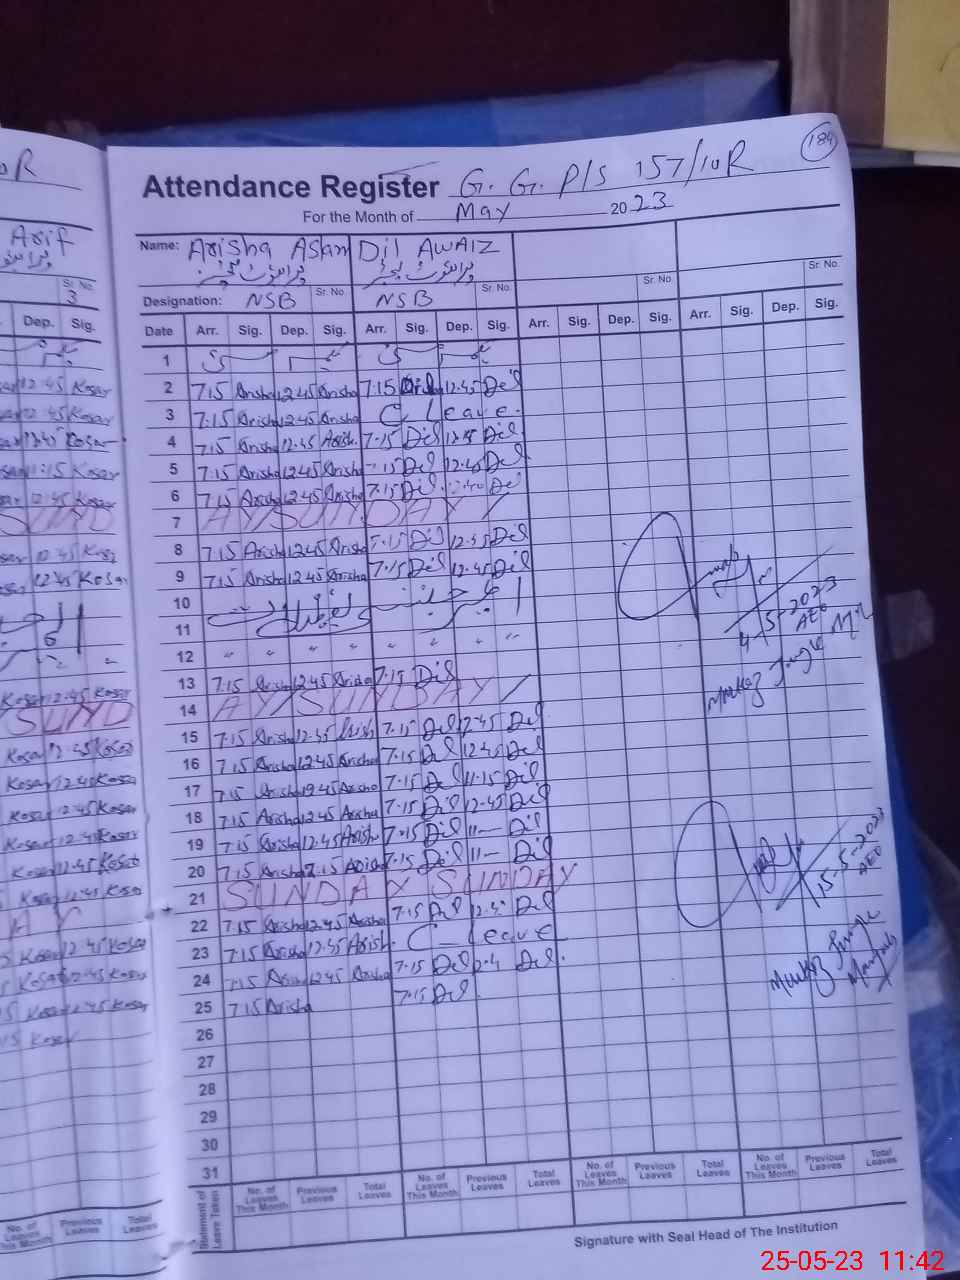 Attendance Register G. G. P/S 157/10R
184
For the Month of May 2023
Name: Arisha Aslam Dil AWAIZ
Sr. No. Sr. No. Sr. No. Sr. No.
Designation: NSB NSB
Date Arr. Sig. Dep. Sig. Arr. Sig. Dep. Sig. Arr. Sig. Dep. Sig. Arr. Sig. Dep. Sig.
1
2 7:15 Arisha 12:45 Arisha 7:15 Dil 12:45 Dil
3 7:15 Arisha 12:45 Arisha C. Leave.
4 7:15 Arisha 12:45 Arish. 7:15 Dil Dil
5 7:15 Arisha 12:45 Arisha Dil 12:40 Dil
6 7:15 Arisha 12:45 Arisha 7:15 Dil 12:40 Dil
7 AY SUNDAY
8 7:15 Arisha 12:45 Arisha 7:15 Dil 12:45 Dil
9 7:15 Arisha 12:45 Arisha 7:15 Dil 12:45 Dil
10
11
12 " " " " " " "
13 7:15 Arisha 12:45 Arisha 7:15 Dil
14 AY SUNDAY
15 7:15 Arisha 12:45 Arish 7:15 Dil 12:45 Dil
16 7:15 Arisha 12:45 Arisha 7:15 Dil 12:45 Dil
17 7:15 Arisha 12:45 Arisha 7:15 Dil 11:15 Dil
18 7:15 Arisha 12:45 Arisha 7:15 Dil 12:45 Dil
19 7:15 Arisha 12:45 Arish 7:15 Dil 11— Dil
20 7:15 Arisha Arisha 7:15 Dil 11— Dil
21 SUNDAY SUNDAY
22 7:15 Arisha 12:45 Arisha 7:15 Dil 12:45 Dil
23 7:15 Arisha 12:45 Arish. C— Leave
24 7:15 Arisha 12:45 Arisha 7:15 Dil Dil.
25 7:15 Arisha 7:15 Dil
26
27
28
29
30
31
4-5-2023
AEO
Markaz Jungle
15-5-2023
AEO
Markaz Jungle
Statement of Leave Taken No. of Leaves This Month Previous Leaves Total Leaves No. of Leaves This Month Previous Leaves Total Leaves No. of Leaves This Month Previous Leaves Total Leaves No. of Leaves This Month Previous Leaves Total Leaves
Signature with Seal Head of The Institution
Asif
Sr. No.
3
Dep. Sig.
12:45 Kosar
12:45 Kosar
12:45 Kosar
11:15 Kosar
12:45 Kosar
SUND
12:45 Kosar
12:45 Kosar
Kosar 12:45 Kosar
SUND
Kosar 12:45 Kosar
Kosar 12:45 Kosar
Kosar 12:45 Kosar
Kosar 12:45 Kosar
Kosar 12:45 Kosar
Kosar 12:45 Kosar
AY
Kosar 12:45 Kosar
Kosar 12:45 Kosar
Kosar 12:45 Kosar
Kosar
No. of Leaves This Month Previous Leaves Total Leaves
25-05-23 11:42